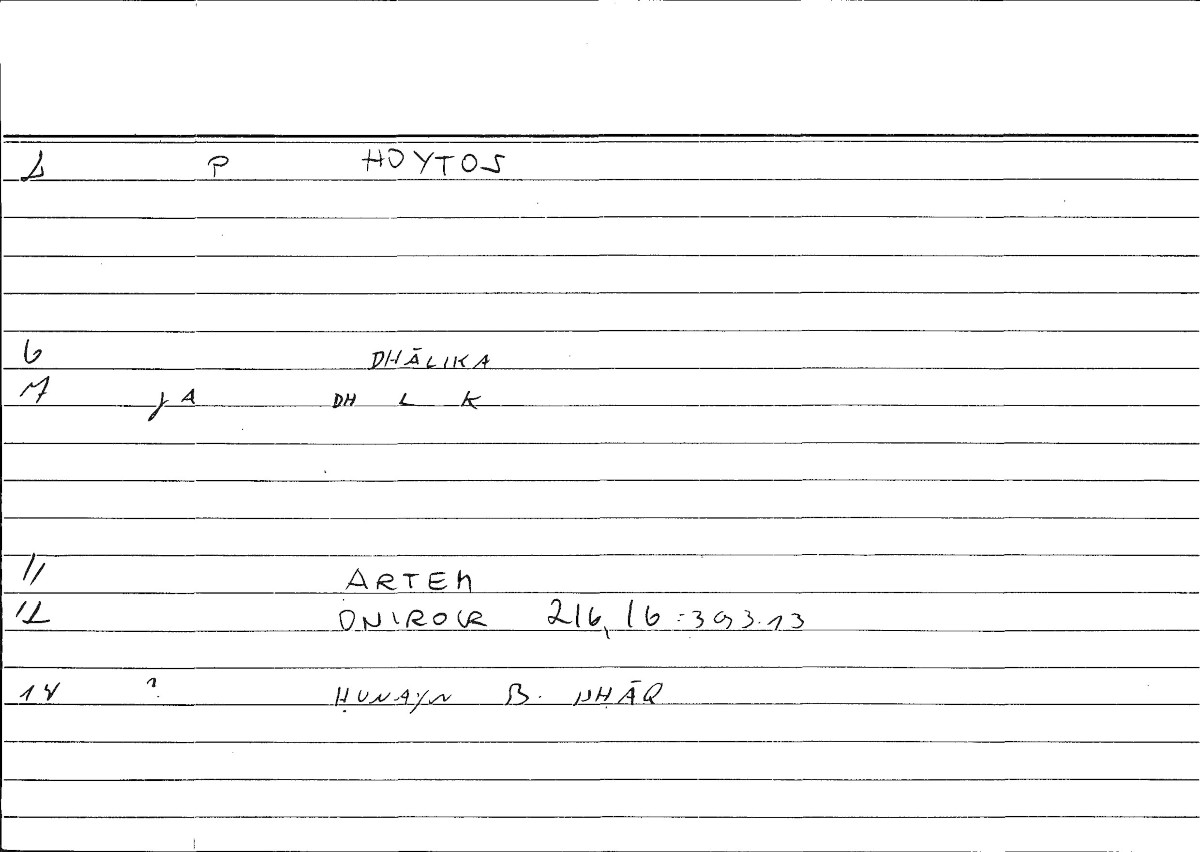 2 P HOYTOS
6 DHĀLIKA
7 jA DH L K
11 ARTEM
12 ONIROCR 216,16 = 393.13
14 ? ḤUNAYN B. ISḤĀQ